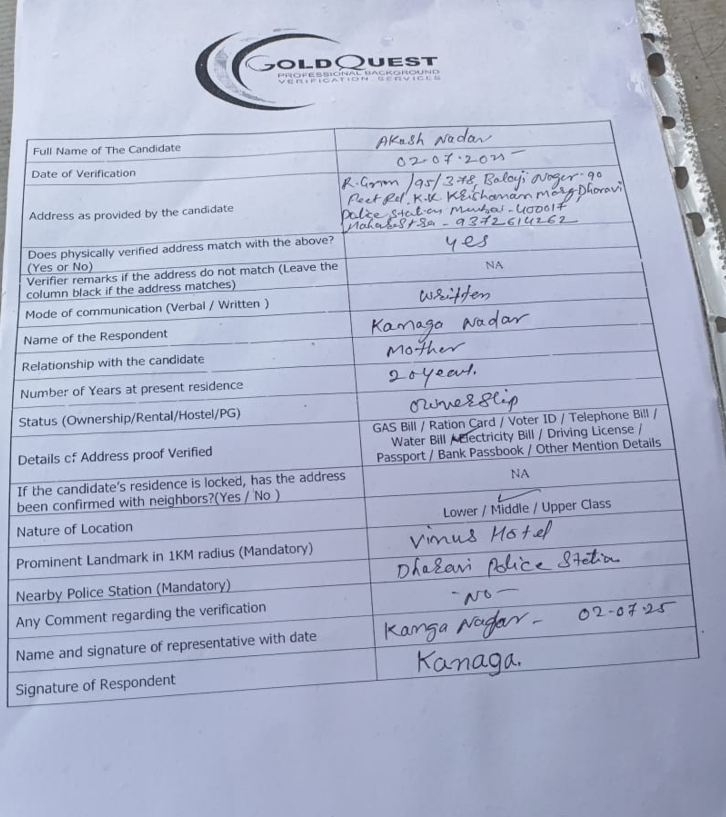 GOLDQUEST
PROFESSIONAL BACKGROUND
VERIFICATION SERVICES
Full Name of The Candidate
Akash Nadar
Date of Verification
02-07-2025
Address as provided by the candidate
/95/378, Balaji Nager-90
Peet Rd. K.K Krishanan Marg, Dharavi
Police Station Mumbai-400017
- 9372614262
Does physically verified address match with the above?
(Yes or No)
yes
Verifier remarks if the address do not match (Leave the
column black if the address matches)
NA
Mode of communication (Verbal / Written )
written
Name of the Respondent
Kanaga Nadar
Relationship with the candidate
Mother
Number of Years at present residence
20 year.
Status (Ownership/Rental/Hostel/PG)
ownership
Details of Address proof Verified
GAS Bill / Ration Card / Voter ID / Telephone Bill /
Water Bill / Electricity Bill / Driving License /
Passport / Bank Passbook / Other Mention Details
If the candidate's residence is locked, has the address
been confirmed with neighbors?(Yes / No )
NA
Nature of Location
Lower / Middle / Upper Class
Prominent Landmark in 1KM radius (Mandatory)
Vinus Hotel
Nearby Police Station (Mandatory)
Dharavi Police Station
Any Comment regarding the verification
- No -
Name and signature of representative with date
Kanga Nadar - 02-07-25
Signature of Respondent
Kanaga.